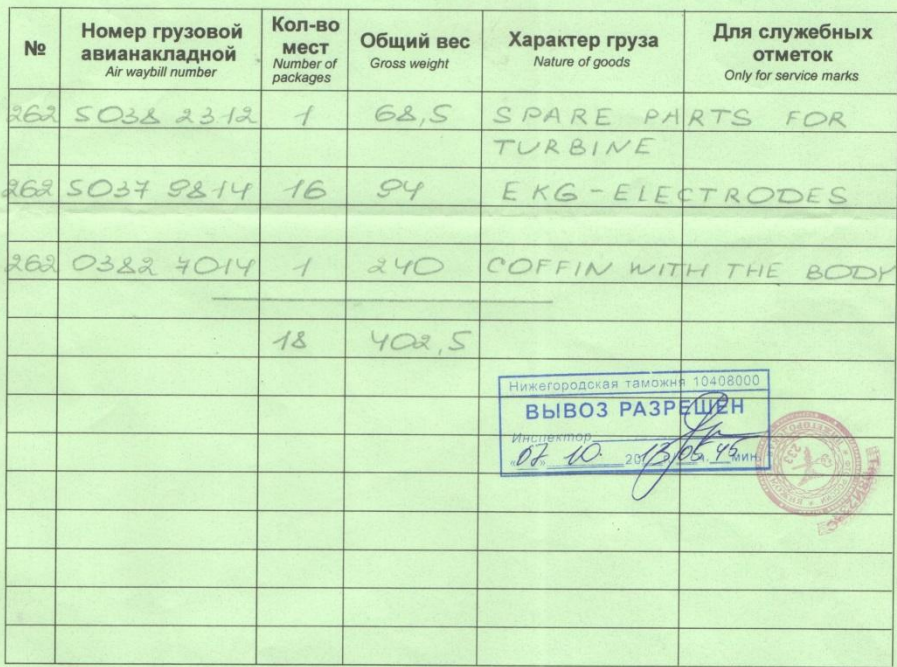 № Номер грузовой авианакладной Air waybill number Кол-во мест Number of packages Общий вес Gross weight Характер груза Nature of goods Для служебных отметок Only for service marks
262 5038 2312 1 68,5 SPARE PARTS FOR
TURBINE
262 5037 9814 16 94 EKG-ELECTRODES
262 0382 7014 1 240 COFFIN WITH THE BODY
18 402,5
Нижегородская таможня 10408000
ВЫВОЗ РАЗРЕШЕН
Инспектор
«07» 10. 2013 г. 05 ч. 45 мин.